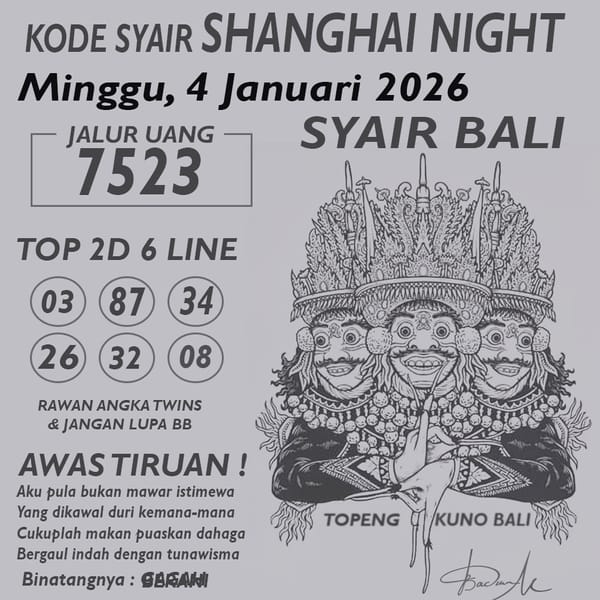 KODE SYAIR SHANGHAI NIGHT
Minggu, 4 Januari 2026
JALUR UANG
7523
SYAIR BALI
TOP 2D 6 LINE
03 87 34
26 32 08
RAWAN ANGKA TWINS
& JANGAN LUPA BB
AWAS TIRUAN !
Aku pula bukan mawar istimewa
Yang dikawal duri kemana-mana
Cukuplah makan puaskan dahaga
Bergaul indah dengan tunawisma
Binatangnya :
TOPENG KUNO BALI